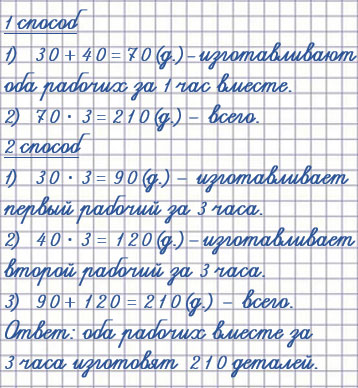 1 способ
1) 30 + 40 = 70 (д.) – изготавливают
оба рабочих за 1 час вместе.
2) 70 · 3 = 210 (д.) – всего.
2 способ
1) 30 · 3 = 90 (д.) – изготавливает
первый рабочий за 3 часа.
2) 40 · 3 = 120 (д.) – изготавливает
второй рабочий за 3 часа.
3) 90 + 120 = 210 (д.) – всего.
Ответ: оба рабочих вместе за
3 часа изготовят 210 деталей.